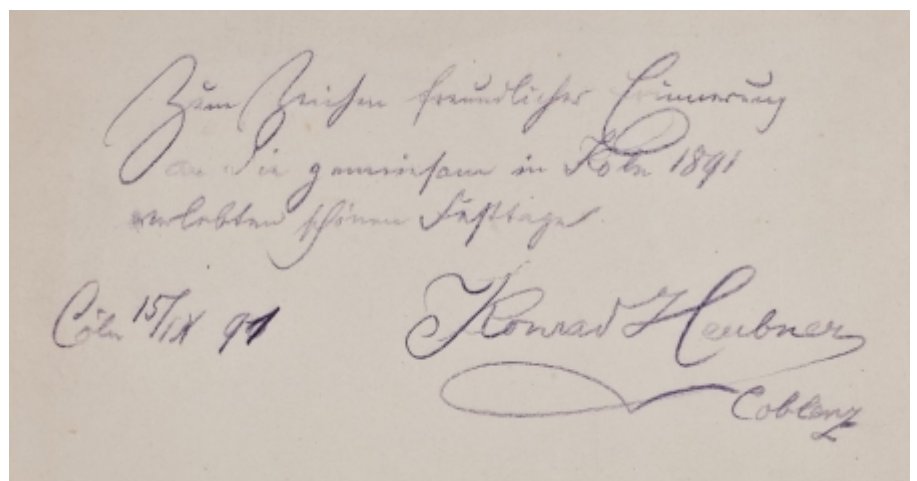 Zum Zeichen freundlicher Erinnerung
an die gemeinsam in Köln 1891
verlebten schönen Festtage
Cöln 15/IX 91
Konrad Heubner
Coblenz